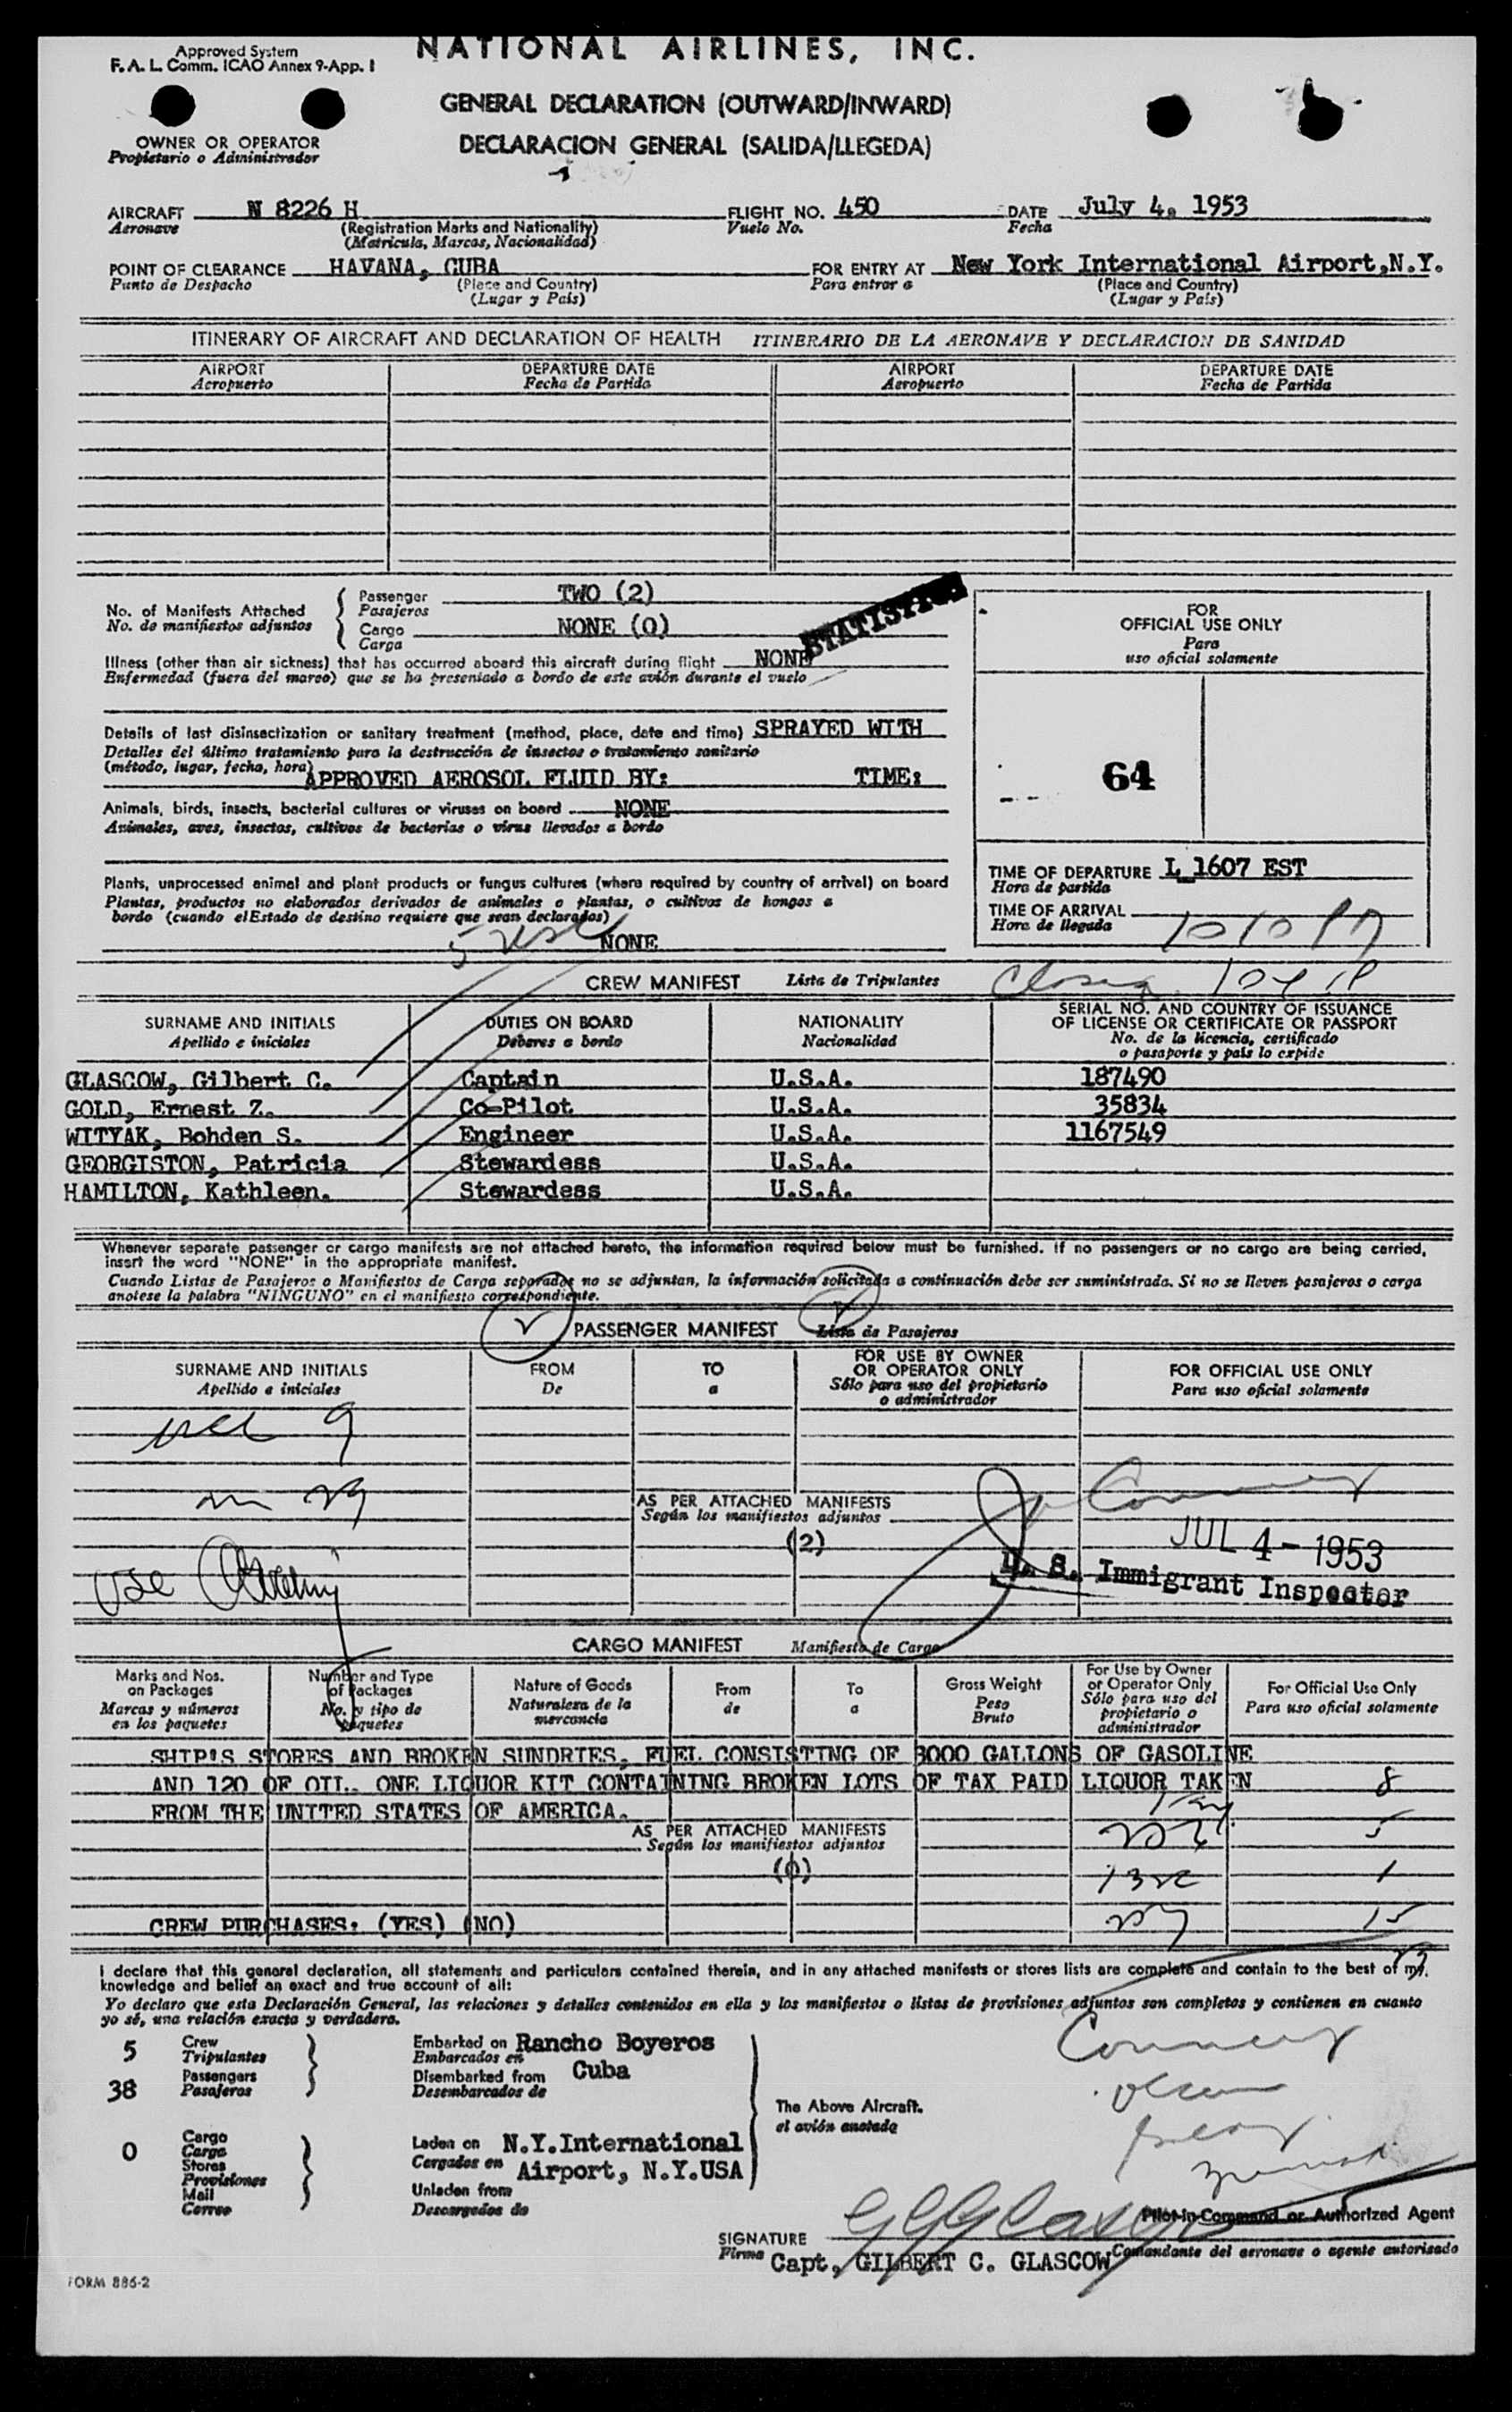 Approved System
F. A. L. Comm. ICAO Annex 9-App. I
NATIONAL AIRLINES, INC.
GENERAL DECLARATION (OUTWARD/INWARD)
DECLARACION GENERAL (SALIDA/LLEGEDA)
OWNER OR OPERATOR
Propietario o Administrador
AIRCRAFT N 8226 H FLIGHT NO. 450 DATE July 4, 1953
Aeronave (Registration Marks and Nationality) Vuelo No. Fecha
(Matricula, Marcas, Nacionalidad)
POINT OF CLEARANCE HAVANA, CUBA FOR ENTRY AT New York International Airport, N.Y.
Punto de Despacho (Place and Country) Para entrar a (Place and Country)
(Lugar y País) (Lugar y País)
ITINERARY OF AIRCRAFT AND DECLARATION OF HEALTH ITINERARIO DE LA AERONAVE Y DECLARACION DE SANIDAD
AIRPORT DEPARTURE DATE AIRPORT DEPARTURE DATE
Aeropuerto Fecha de Partida Aeropuerto Fecha de Partida
No. of Manifests Attached Passenger TWO (2)
No. de manifiestos adjuntos Pasajeros
Cargo NONE (0)
Carga
STATISTICS
Illness (other than air sickness) that has occurred aboard this aircraft during flight NONE
Enfermedad (fuera del mareo) que se ha presentado a bordo de este avión durante el vuelo
Details of last disinsectization or sanitary treatment (method, place, date and time) SPRAYED WITH
Detalles del último tratamiento para la destrucción de insectos o tratamiento sanitario
(método, lugar, fecha, hora) APPROVED AEROSOL FLUID BY: TIME:
Animals, birds, insects, bacterial cultures or viruses on board NONE
Animales, aves, insectos, cultivos de bacterias o virus llevados a bordo
Plants, unprocessed animal and plant products or fungus cultures (where required by country of arrival) on board
Plantas, productos no elaborados derivados de animales o plantas, o cultivos de hongos a
bordo (cuando el Estado de destino requiere que sean declarados)
NONE
FOR
OFFICIAL USE ONLY
Para
uso oficial solamente
64
TIME OF DEPARTURE L 1607 EST
Hora de partida
TIME OF ARRIVAL 1010 P
Hora de llegada
CREW MANIFEST Lista de Tripulantes
SURNAME AND INITIALS DUTIES ON BOARD NATIONALITY SERIAL NO. AND COUNTRY OF ISSUANCE
OF LICENSE OR CERTIFICATE OR PASSPORT
Apellido e iniciales Deberes a bordo Nacionalidad No. de la licencia, certificado
o pasaporte y país lo expide
GLASCOW, Gilbert C. Captain U.S.A. 187490
GOLD, Ernest Z. Co-Pilot U.S.A. 35834
WITYAK, Bohden S. Engineer U.S.A. 1167549
GEORGISTON, Patricia Stewardess U.S.A.
HAMILTON, Kathleen. Stewardess U.S.A.
Whenever separate passenger or cargo manifests are not attached hereto, the information required below must be furnished. If no passengers or no cargo are being carried,
insert the word "NONE" in the appropriate manifest.
Cuando Listas de Pasajeros o Manifiestos de Carga separados no se adjuntan, la información solicitada a continuación debe ser suministrada. Si no se lleven pasajeros o carga
anotese la palabra "NINGUNO" en el manifiesto correspondiente.
PASSENGER MANIFEST Lista de Pasajeros
SURNAME AND INITIALS FROM TO FOR USE BY OWNER FOR OFFICIAL USE ONLY
OR OPERATOR ONLY
Apellido e iniciales De a Sólo para uso del propietario Para uso oficial solamente
o administrador
9
29
AS PER ATTACHED MANIFESTS
Según los manifiestos adjuntos
(2)
JUL 4 - 1953
U. S. Immigrant Inspector
CARGO MANIFEST Manifiesto de Carga
Marks and Nos. Number and Type Nature of Goods From To Gross Weight For Use by Owner For Official Use Only
on Packages of Packages Naturaleza de la de a Peso or Operator Only Para uso oficial solamente
Marcas y números No. y tipo de mercancia Bruto Sólo para uso del
en los paquetes paquetes propietario o
administrador
SHIP'S STORES AND BROKEN SUNDRIES, FUEL CONSISTING OF 3000 GALLONS OF GASOLINE
AND 120 OF OIL. ONE LIQUOR KIT CONTAINING BROKEN LOTS OF TAX PAID LIQUOR TAKEN 8
FROM THE UNITED STATES OF AMERICA.
AS PER ATTACHED MANIFESTS 5
Según los manifiestos adjuntos
(0) 1
CREW PURCHASES: (YES) (NO) 15
29
I declare that this general declaration, all statements and particulars contained therein, and in any attached manifests or stores lists are complete and contain to the best of my
knowledge and belief an exact and true account of all:
Yo declaro que esta Declaración General, las relaciones y detalles contenidos en ella y los manifiestos o listas de provisiones adjuntos son completos y contienen en cuanto
yo sé, una relación exacta y verdadera.
5 Crew Embarked on Rancho Boyeros
Tripulantes Embarcados en
38 Passengers Disembarked from Cuba
Pasajeros Desembarcados de
The Above Aircraft.
el avión anotado
0 Cargo Laden on N.Y.International
Carga Cargados en Airport, N.Y.USA
Stores
Provisiones
Mail Unladen from
Correo Descargados de
Pilot-in-Command or Authorized Agent
SIGNATURE
Firma Capt, GILBERT C. GLASCOW Comandante del aeronave o agente autorizado
FORM 886-2